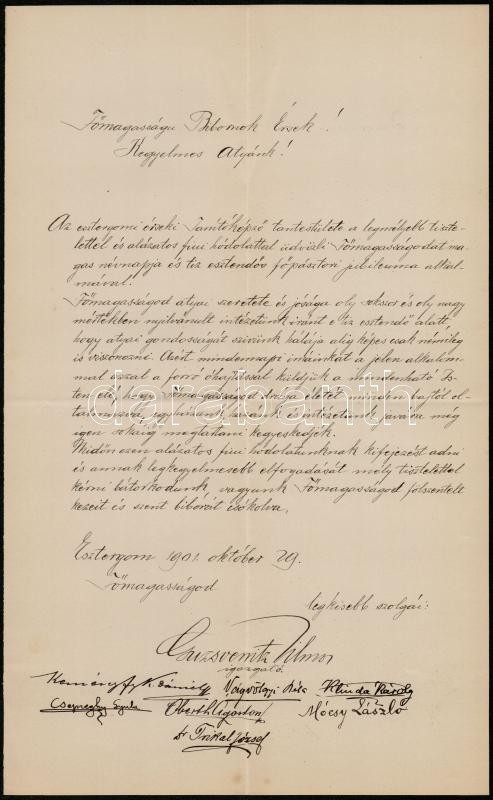 Főmagasságu Bibornok Érsek!
Kegyelmes Atyánk!
Az esztergomi érseki Tanitóképző tantestülete a legmélyebb tisz-
telettel és alázatos fiui hódolattal üdvözli Főmagasságodat ma-
gas névnapja és tiz esztendőv főpásztori jubileuma alkal-
mával.
Főmagasságod atyai szeretete és jósága oly sokszor és oly nagy
mértékben nyilvánult intézetünk iránt e tiz esztendő alatt,
hogy atyai gondosságát szivünk hálája alig képes csak némileg
is viszonozni. Azért mindennapi imáinkat a jelen alkalom-
mal azzal a forró óhajtással küldjük a mindenható Is-
ten elé, hogy Főmagasságod drága életét minden bajtól ol-
talmazva, egyházunk, hazánk és intézetünk javára még
igen sokáig megtartani kegyeskedjék.
Midőn ezen alázatos fiui hódolatunknak kifejezést adni
és annak legkegyelmesebb elfogadását mély tisztelettel
kérni bátorkodunk, vagyunk Főmagasságod fölszentelt
kezeit és szent biborát csókolva,
Esztergom 1901. október 29.
Főmagasságod
legkisebb szolgái:
Guzsvenitz Vilmos
igazgató
Keményfy K. Dániel Völgyi Béla Klinda Károly
Gyula Oberth Ágoston Mócsy László
Dr Trikál József
darabanth